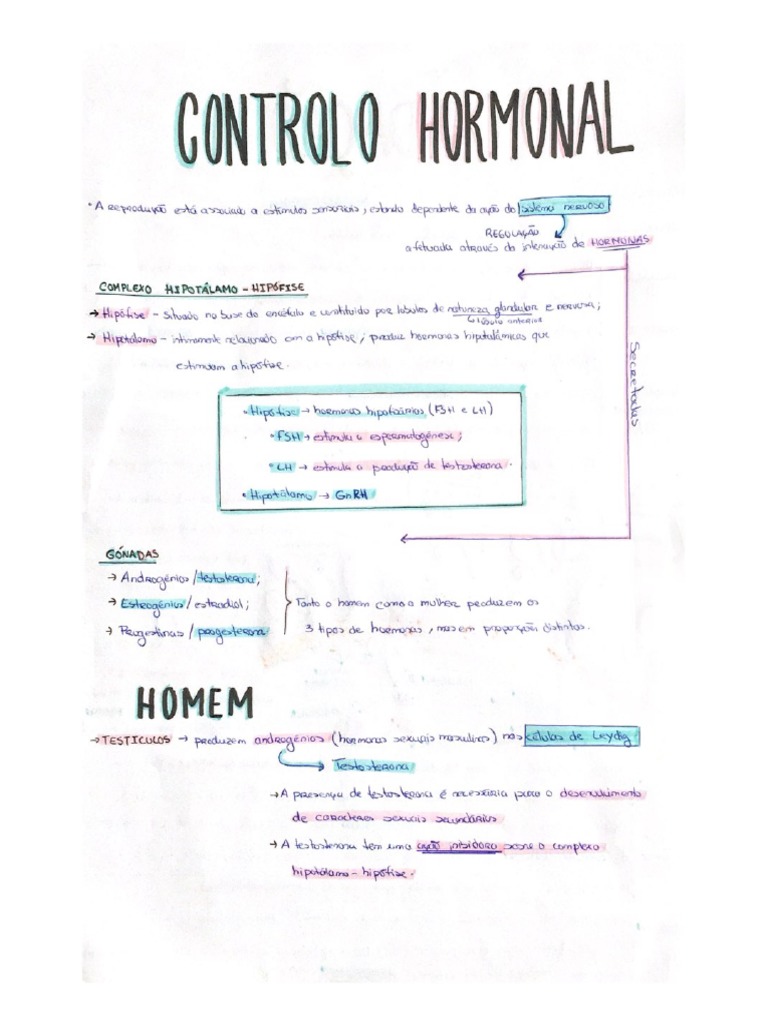 CONTROLO HORMONAL
• A reprodução está associada a estímulos sensoriais, estando dependente da ação do sistema nervoso
REGULAÇÃO
efetuada através da interação de HORMONAS
COMPLEXO HIPOTÁLAMO - HIPÓFISE
→ Hipófise - situada na base do encéfalo e constituída por lóbulos de natureza glandular e nervosa;
↳ lóbulo anterior
→ Hipotálamo - intimamente relacionado com a hipófise; produz hormonas hipotalâmicas que
estimulam a hipófise.
Secretadas
• Hipófise → hormonas hipofisárias (FSH e LH)
• FSH → estimula a espermatogénese;
• LH → estimula a produção de testosterona.
• Hipotálamo → GnRH
GÓNADAS
→ Androgénios / testosterona;
→ Estrogénios / estradiol;
→ Progestinas / progesterona
Tanto o homem como a mulher produzem os
3 tipos de hormonas, mas em proporções distintas.
HOMEM
→ TESTÍCULOS → produzem androgénios (hormonas sexuais masculinas) nas células de Leydig
Testosterona
→ A presença de testosterona é necessária para o desenvolvimento
de caracteres sexuais secundários
→ A testosterona tem uma ação inibidora sobre o complexo
hipotálamo - hipófise.